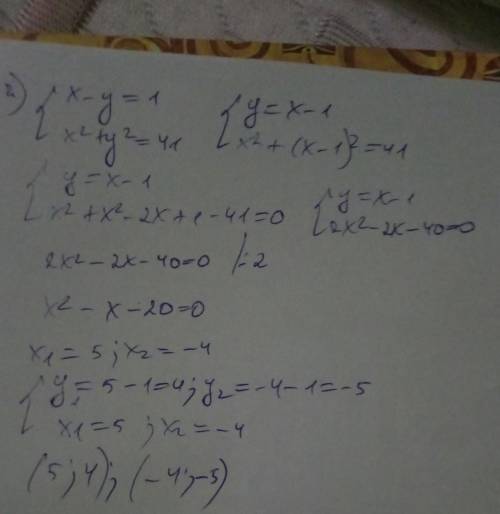 2) { x-y=1 { y=x-1
x²+y²=41 x²+(x-1)²=41
{ y=x-1 { y=x-1
x²+x²-2x+1-41=0 2x²-2x-40=0
2x²-2x-40=0 /:2
x²-x-20=0
x₁=5; x₂=-4
{ y₁=5-1=4; y₂=-4-1=-5
x₁=5; x₂=-4
(5;4); (-4;-5)